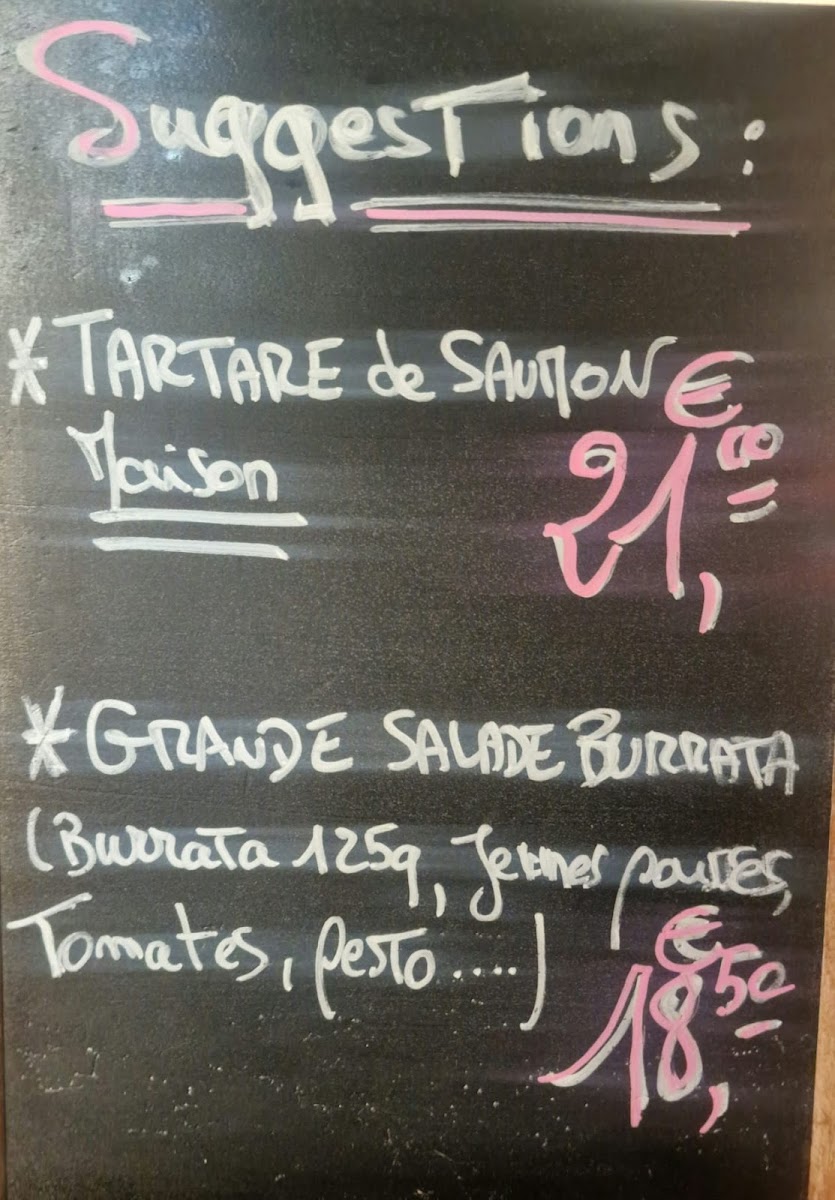 Suggestions :
* TARTARE de SAUMON
Maison
€
21,00
* GRANDE SALADE BURRATA
(Burrata 125g, Jeunes pousses,
Tomates, pesto ....)
€
18,50